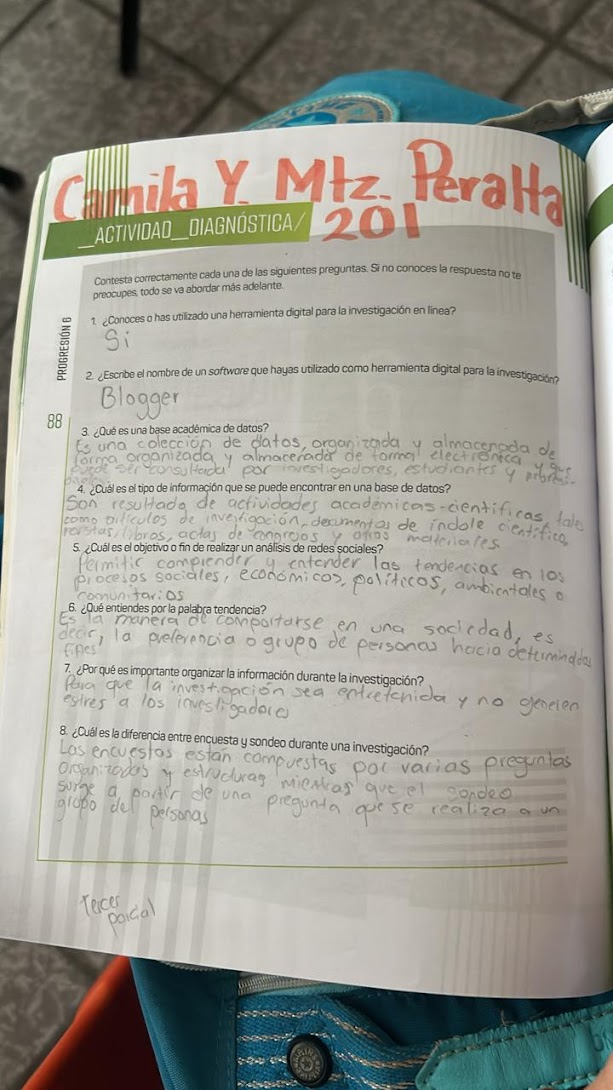 Camila Y. Mtz. Peralta
__ACTIVIDAD__DIAGNÓSTICA/ 201
Contesta correctamente cada una de las siguientes preguntas. Si no conoces la respuesta no te
preocupes, todo se va abordar más adelante.
PROGRESIÓN 6
1. ¿Conoces o has utilizado una herramienta digital para la investigación en línea?
Si
2. ¿Escribe el nombre de un software que hayas utilizado como herramienta digital para la investigación?
Blogger
88
3. ¿Qué es una base académica de datos?
Es una colección de datos, organizada y almacenada de
forma organizada y almacenada de forma electrónica y que
puede ser consultada por investigadores, estudiantes y
4. ¿Cuál es el tipo de información que se puede encontrar en una base de datos?
Son resultado de actividades académicas-científicas, tales
como artículos de investigación, documentos de índole científica,
revistas, libros, actas de congrojos y otros materiales
5. ¿Cuál es el objetivo o fin de realizar un análisis de redes sociales?
Permitir comprender y entender las tendencias en los
procesos sociales, económicos, políticos, ambientales o
comunitarios
6. ¿Qué entiendes por la palabra tendencia?
Es la manera de comportarse en una sociedad, es
decir, la preferencia o grupo de personas hacia determinados
fines
7. ¿Por qué es importante organizar la información durante la investigación?
Para que la investigación sea entretenida y no generen
estres a los investigadores
8. ¿Cuál es la diferencia entre encuesta y sondeo durante una investigación?
Las encuestas están compuestas por varias preguntas
organizadas y estructuras mientras que el sondeo
surge a partir de una pregunta que se realiza a un
grupo del personas
Tercer
parcial